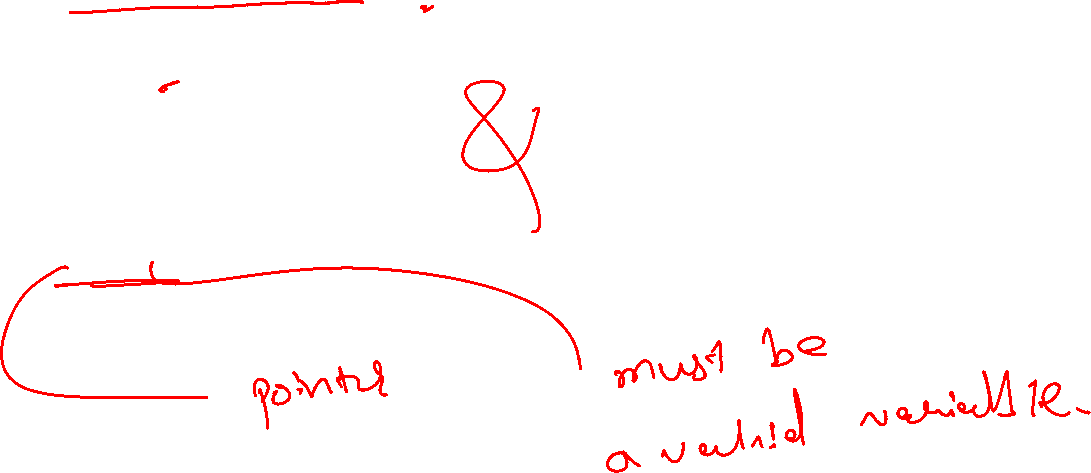 &
pointer
must be
a valid variable.